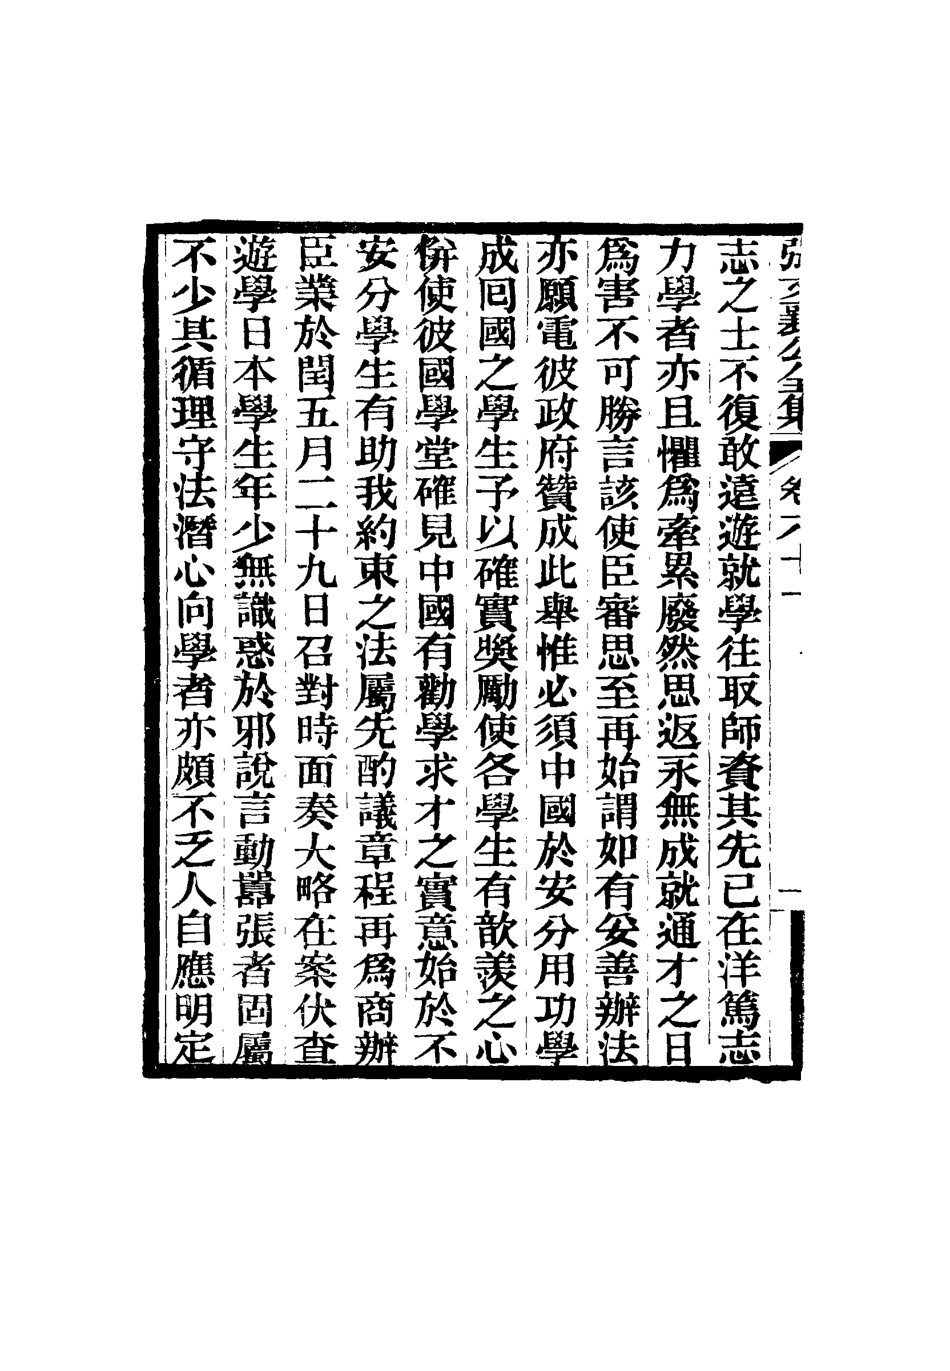 張文襄公全集 卷六十一 一
志之士不復敢遠遊就學往取師資其先已在洋篤志
力學者亦且懼爲牽累廢然思返永無成就通才之日
爲害不可勝言該使臣審思至再始謂如有妥善辦法
亦願電彼政府贊成此舉惟必須中國於安分用功學
成回國之學生予以確實奬勵使各學生有歆羨之心
倂使彼國學堂確見中國有勸學求才之實意始於不
安分學生有助我約束之法屬先酌議章程再爲商辦
臣業於閏五月二十九日召對時面奏大略在案伏查
遊學日本學生年少無識惑於邪說言動囂張者固屬
不少其循理守法潛心向學者亦頗不乏人自應明定